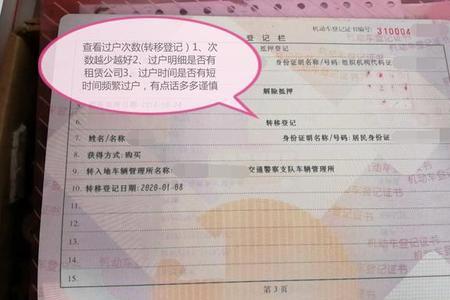 机动车登记证书编号: 310004
登记栏
抵押登记
身份证明名称/号码: 组织机构代码证
解除抵押
6. 转移登记
7. 姓名/名称 身份证明名称/号码: 居民身份证
8. 获得方式: 购买
9. 转入地车辆管理所名称: 交通警察支队车辆管理所
10. 转移登记日期: 2020-01-08
11.
12.
13.
14.
15.
第 3 页
查看过户次数(转移登记）1、次
数越少越好2、过户明细是否有
租赁公司3、过户时间是否有短
时间频繁过户，有点话多多谨慎
机动车登记证书